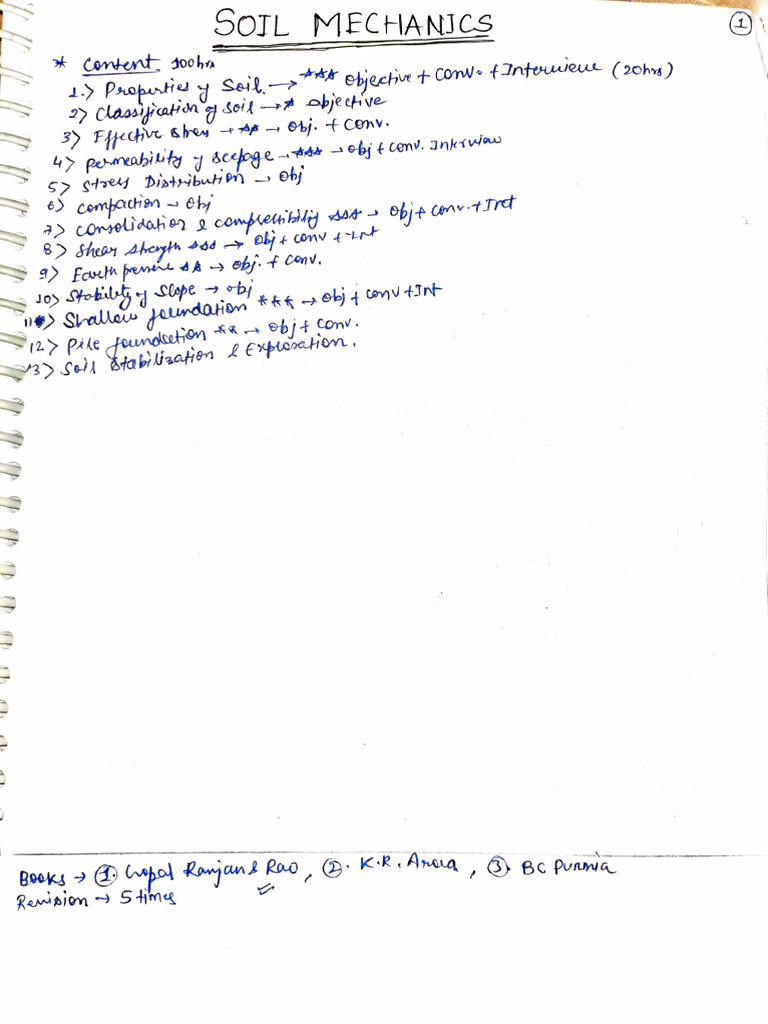 SOIL MECHANICS
①
* Content 100hrs
1.) Properties of Soil → *** Objective + Conv. + Interview (20hrs)
2) Classification of soil → * Objective
3) Effective stress → ** → Obj. + Conv.
4) Permeability & seepage → *** → Obj + Conv. Interview
5) Stress Distribution → Obj
6) Compaction → Obj
7) Consolidation & compressibility *** → Obj + conv. + Int
8) Shear strength *** → Obj + conv + Int
9) Earth pressure ** → Obj. + Conv.
10) Stability of slope → obj
11) Shallow foundation *** → Obj + conv + Int
12) Pile foundation ** → Obj + Conv.
13) Soil Stabilization & Exploration.
Books → ①. Gopal Ranjan & Rao, ②. K.R. Arora, ③. BC Punmia
Revision → 5 times